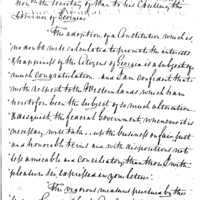 nor the Secretary of War to his Excellency the
Governor of Georgia
The adoption of a Constitution which is
no doubt well calculated to promote the interests
& happiness of the Citizens of Georgia is a subject of
much congratulation. and I am confident that
with respect to the Western lands which have
heretofore been the subject of so much altercation
& disquiet, the federal government, whenever it is
necessary, will take up the business on fair, just
and honorable terms and with dispositions not
less amicable and conciliatory, than those I with
pleasure see expressed in your letter.
The vigorous measures pursued by the